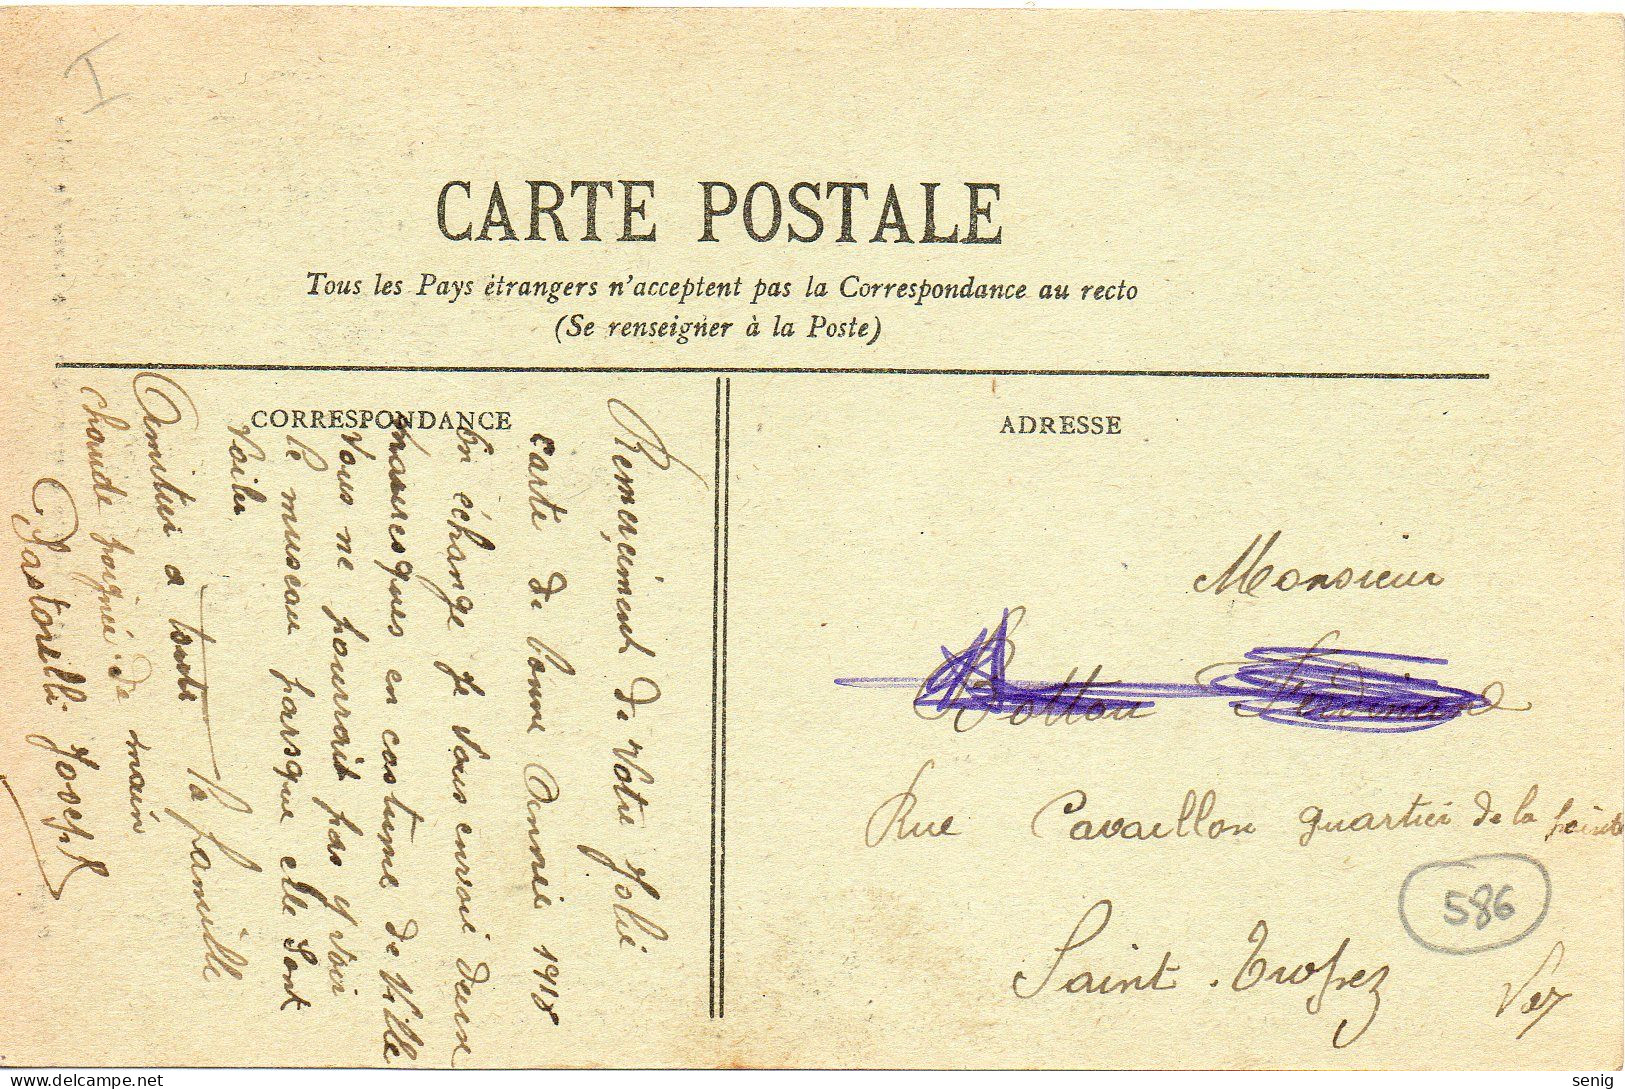 I
CARTE POSTALE
Tous les Pays étrangers n'acceptent pas la Correspondance au recto
(Se renseigner à la Poste)
CORRESPONDANCE
Remerciment de votre Jolie
Carte de bonne Année 1918
En échange je vous envoie deux
Mauresques en costume de Ville
Vous ne pourrait pas y voir
le museau parsque elle sont
Voiler
Amitui a toute la famille
Chaude poignée de main
Pastorelli Joseph
ADRESSE
Monsieur
Bottou Ferdinand
Rue Cavaillon quartier de la pointe
Saint-Tropez
Var
586
Delcampe.net
senig